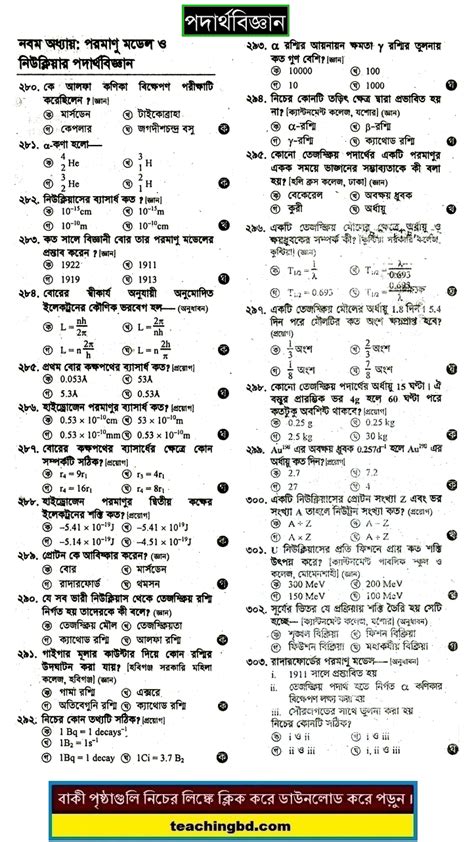 পদার্থবিজ্ঞান
নবম অধ্যায়: পরমাণু মডেল ও
নিউক্লিয়ার পদার্থবিজ্ঞান
২৮০. কে আলফা কণিকা বিক্ষেপণ পরীক্ষাটি
করেছিলেন ? [জ্ঞান]
ক মার্সডেন খ টাইকোব্রাহা
গ কেপলার ঘ জগদীশচন্দ্র বসু
২৮১. α-কণা হলো—
২৮২. নিউক্লিয়াসের ব্যাসার্ধ কত ? [জ্ঞান]
ক 10⁻¹⁵cm খ 10⁻¹⁵m
গ 10⁻¹⁰m ঘ 10⁻¹⁰cm
২৮৩. কত সালে বিজ্ঞানী বোর তার পরমাণু মডেলের
প্রস্তাব করেন ? [জ্ঞান]
ক 1922 খ 1911
গ 1919 ঘ 1913
২৮৪. বোরের স্বীকার্য অনুযায়ী অনুমোদিত
ইলেকট্রনের কৌণিক ভরবেগ হল— (অনুধাবন)
ক L = nh/2π খ L = 2π/nh
গ L = n 2π/h ঘ L = n 2h/π
২৮৫. প্রথম বোর কক্ষপথের ব্যাসার্ধ কত? [প্রয়োগ]
ক 0.053Å খ 53Å
গ 0.53Å ঘ 5.3Å
২৮৬. হাইড্রোজেন পরমাণুর ব্যাসার্ধ কত? [প্রয়োগ]
ক 0.53 × 10⁻¹⁰cm খ 53 × 10⁻¹⁰m
গ 0.53 × 10⁻¹⁰mm ঘ 0.53 × 10⁻¹⁰m
২৮৭. বোরের কক্ষপথের ব্যাসার্ধের ক্ষেত্রে কোন
সম্পর্কটি সঠিক? [প্রয়োগ]
ক r₄ = 9r₁ খ r₃ = 4r₁
গ r₄ = 16r₁ ঘ r₄ = 8r₁
২৮৮. হাইড্রোজেন পরমাণুর দ্বিতীয় কক্ষের
ইলেকট্রনের শক্তি কত? (প্রয়োগ)
ক −5.41 × 10⁻¹⁹J খ −5.41 × 10¹⁹J
গ −5.14 × 10¹⁹J ঘ −4.51 × 10¹⁹J
২৮৯. প্রোটন কে আবিষ্কার করেন? (জ্ঞান)
ক বোর খ মার্সডেন
গ রাদারফোর্ড ঘ থমসন
২৯০. যে সব ভারী নিউক্লিয়াস থেকে তেজস্ক্রিয় রশ্মি
নির্গত হয় তাদেরকে কী বলে? (জ্ঞান)
ক তেজস্ক্রিয় মৌল খ তেজস্ক্রিয়তা
গ ক্যাথোড রশ্মি ঘ আলফা রশ্মি
২৯১. গাইগার মুলার কাউন্টার দিয়ে কোন রশ্মির
উদঘাটন করা যায়? [হবিগঞ্জ সরকারি মহিলা
কলেজ, হবিগঞ্জ] (জ্ঞান)
ক গামা রশ্মি খ এক্সরে
গ অতিবেগুনি রশ্মি ঘ ক্যাথোড রশ্মি
২৯২. নিচের কোন তথ্যটি সঠিক? [প্রয়োগ]
ক 1 Bq = 1 decays⁻¹
খ 1B₂ = 1s⁻¹
গ 1Bq = 1 decay ঘ 1Ci = 3.7 B₂
২৯৩. α রশ্মির আয়নায়ন ক্ষমতা γ রশ্মির তুলনায়
কত গুণ বেশি? [জ্ঞান]
ক 10000 খ 100
গ 10 ঘ 1000
২৯৪. নিচের কোনটি তড়িৎ ক্ষেত্র দ্বারা প্রভাবিত হয়
না? [ক্যান্টনমেন্ট কলেজ, যশোর] (অনুধাবন)
ক α-রশ্মি খ β-রশ্মি
গ γ-রশ্মি ঘ ক্যাথোড রশ্মি
২৯৫. কোনো তেজস্ক্রিয় পদার্থের একটি পরমাণুর
একক সময়ে ভাঙ্গনের সম্ভাব্যতাকে কী বলা
হয়? [হলি ক্রস কলেজ, ঢাকা] (জ্ঞান)
ক বেকেরেল খ অবক্ষয় ধ্রুবক
গ কুরী ঘ অর্ধায়ু
২৯৬. একটি তেজস্ক্রিয় মৌলের ক্ষেত্রে অর্ধায়ু ও
ক্ষয়ধ্রুবকের সম্পর্ক কী?
২৯৭. একটি তেজস্ক্রিয় মৌলের অর্ধায়ু 1.8 দিন। 5.4
দিন পরে মৌলটির কত অংশ ক্ষয়প্রাপ্ত হবে?
(প্রয়োগ)
ক 1/3 অংশ খ 2/3 অংশ
গ 1/8 অংশ ঘ 7/8 অংশ
২৯৮. কোনো তেজস্ক্রিয় পদার্থের অর্ধায়ু 15 ঘণ্টা। ঐ
বস্তুর প্রারম্ভিক ভর 4g হলে 60 ঘণ্টা পরে
কতটুকু অবশিষ্ট থাকবে? [প্রয়োগ]
ক 0.25 g খ 0.25 kg
গ 2.5 kg ঘ 30 kg
২৯৯. Au¹⁹⁸ এর অবক্ষয় ধ্রুবক 0.257d⁻¹ হলে Au¹⁹⁸ এর
অর্ধায়ু কত দিন? [প্রয়োগ]
ক 2.7 খ 7.2
গ 27 ঘ 4
৩০০. একটি নিউক্লিয়াসের প্রোটন সংখ্যা Z এবং ভর
সংখ্যা A তাহলে নিউট্রন সংখ্যা কত? (প্রয়োগ)
ক A ÷ Z খ A − Z
গ A × Z ঘ A + Z
৩০১. U নিউক্লিয়াসের প্রতি ফিশনে প্রায় কত শক্তি
উৎপন্ন করে? [ক্যান্টনমেন্ট পাবলিক স্কুল ও
কলেজ, মোমেনশাহী] (জ্ঞান)
ক 300 MeV খ 200 MeV
গ 150 MeV ঘ 100 MeV
৩০২. সূর্যের ভিতর যে প্রক্রিয়ায় শক্তি তৈরি হয় সেটি
হচ্ছে— [ক্যান্টনমেন্ট কলেজ, যশোর] (অনুধাবন)
ক শৃঙ্খল বিক্রিয়া খ ফিশন বিক্রিয়া
গ ফিউশন বিক্রিয়া ঘ মহাকর্ষীয় বিক্রিয়া
৩০৩. রাদারফোর্ডের পরমাণু মডেল— [অনুধাবন]
i. 1911 সালে প্রস্তাবিত হয়
ii. তেজস্ক্রিয় পদার্থ হতে নির্গত α কণিকার
বিক্ষেপণ লক্ষ্য করা হয়
iii. সৌরজগতের সাথে তুলনা করা হয়
নিচের কোনটি সঠিক?
ক i ও ii খ i ও iii
গ ii ও iii ঘ i, ii ও iii
বাকী পৃষ্ঠাগুলি নিচের লিঙ্কে ক্লিক করে ডাউনলোড করে পড়ুন।
teachingbd.com